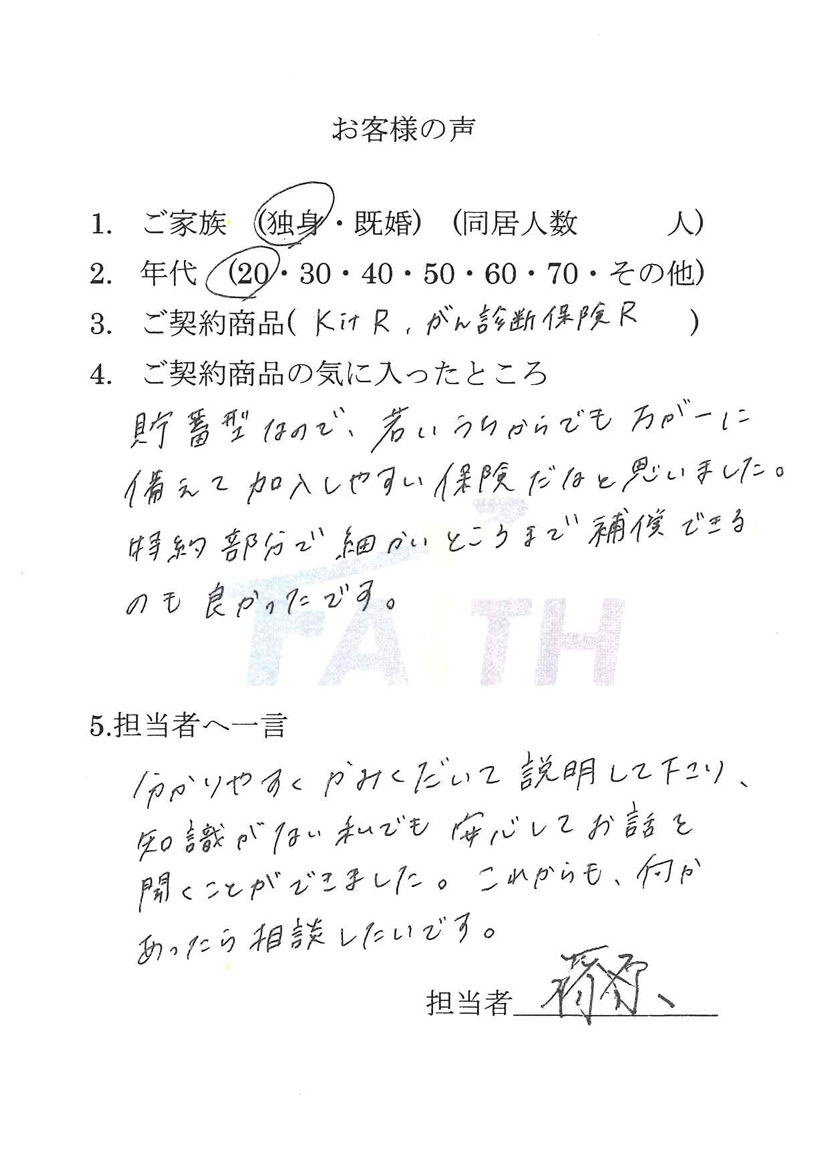 お客様の声
1. ご家族 (独身・既婚) (同居人数 人)
2. 年代 (20・30・40・50・60・70・その他)
3. ご契約商品( Kit R、がん診断保険R )
4. ご契約商品の気に入ったところ
貯蓄型なので、若いうちからでも万が一に
備えて加入しやすい保険だなと思いました。
特約部分で細かいところまで補償できる
のも良かったです。
FAITH
5.担当者へ一言
分かりやすくかみくだいて説明して下さり、
知識がない私でも安心してお話を
聞くことができました。これからも、何か
あったら相談したいです。
担当者